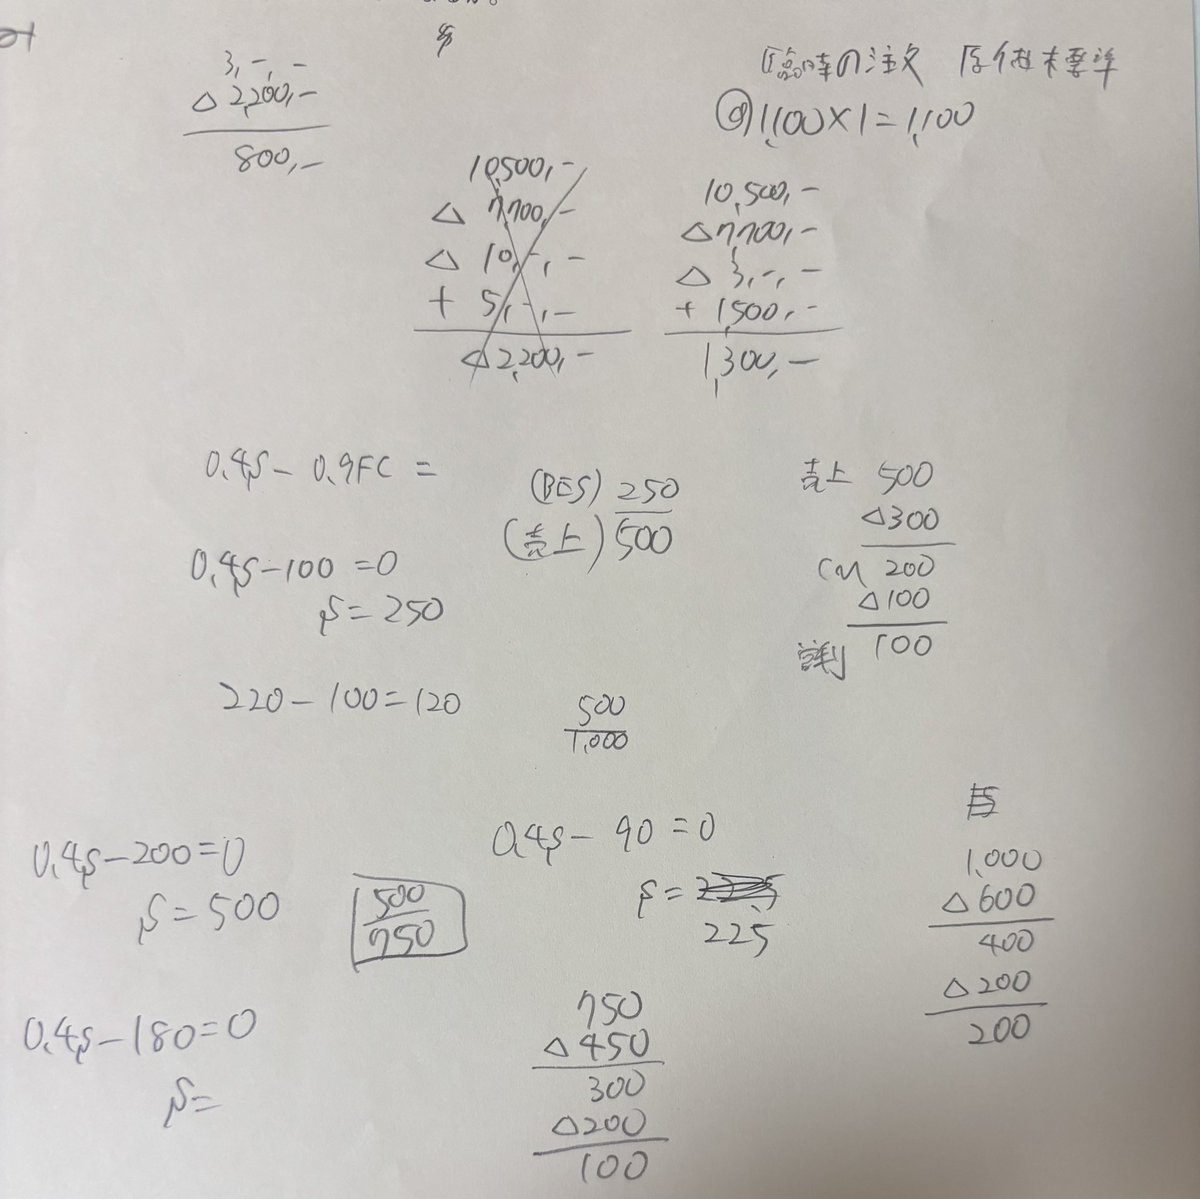 3,-,-
△2,200,-
800,-
臨時の注文
@1,100×1=1,100
10,500,-
△7,700,-
△10,-,-
+5,-,-
△2,200,-
10,500,-
△7,700,-
△3,-,-
+1,500,-
1,300,-
0.4S-0.9FC=
0.4S-100=0
S=250
(BES) 250
(売上) 500
売上 500
△300
CM 200
△100
営利 100
220-100=120
500
1,000
0.4S-200=0
S=500
500
750
0.4S-90=0
S=
225
1,000
△600
400
△200
200
0.4S-180=0
S=
750
△450
300
△200
100